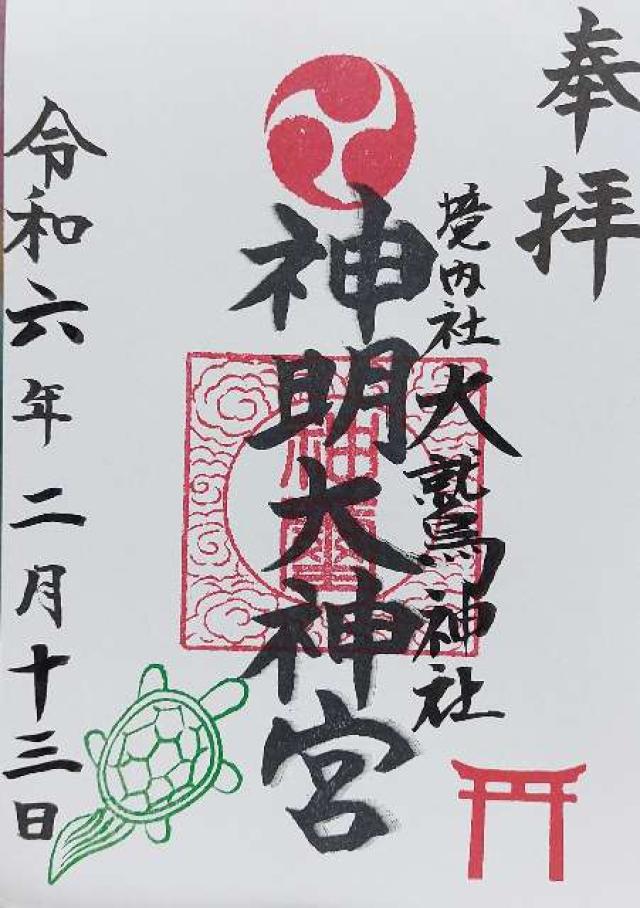 奉拝
境内社 大鷲神社
神明大神宮
令和六年二月十三日